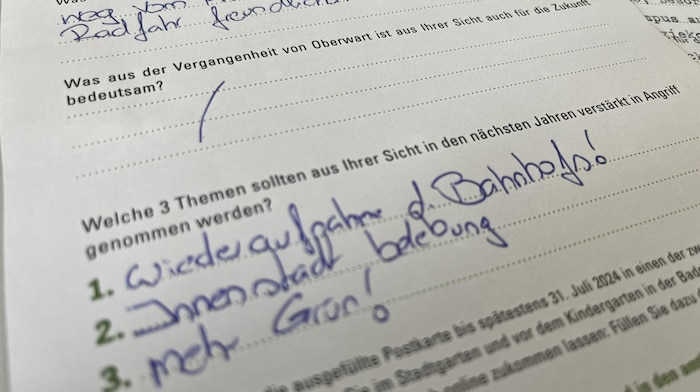 Was
weg vom
Radfahr freundlich
Was aus der Vergangenheit von Oberwart ist aus Ihrer Sicht auch für die Zukunft
bedeutsam?
Welche 3 Themen sollten aus Ihrer Sicht in den nächsten Jahren verstärkt in Angriff
genommen werden?
1. Wiederaufnahme d. Bahnhofs!
2. Innenstadt belebung
3. mehr Grün!
die ausgefüllte Postkarte bis spätestens 31. Juli 2024 in einen der
im Stadtgarten und vor dem Kindergarten in der
online zukommen lassen: Füllen Sie dazu
in den